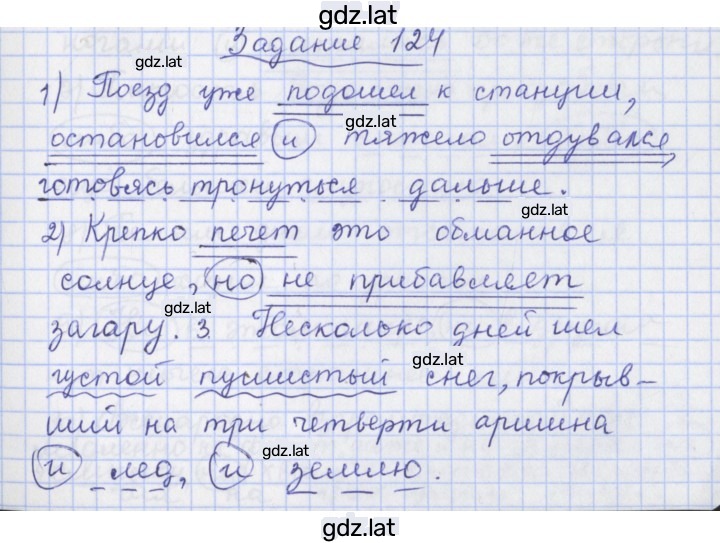 gdz.lat
Задание 124
gdz.lat
gdz.lat
1) Поезд уже подошел к станции,
gdz.lat
остановился и тяжело отдувался,
готовясь тронуться дальше.
gdz.lat
2) Крепко печет это обманное
gdz.lat
солнце, но не прибавляет
gdz.lat
загару. 3 Несколько дней шел
gdz.lat
густой пушистый снег, покрыв-
ший на три четверти аршина
gdz.lat
и лед, и землю.
gdz.lat
gdz.lat